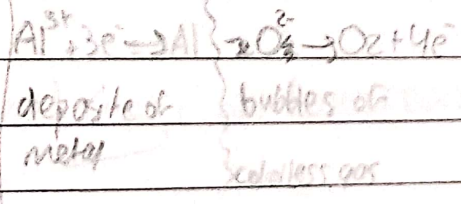 Al³⁺+3e⁻→Al } 2O²⁻→O₂+4e⁻
deposite of } bubbles of
metal
colorless gas